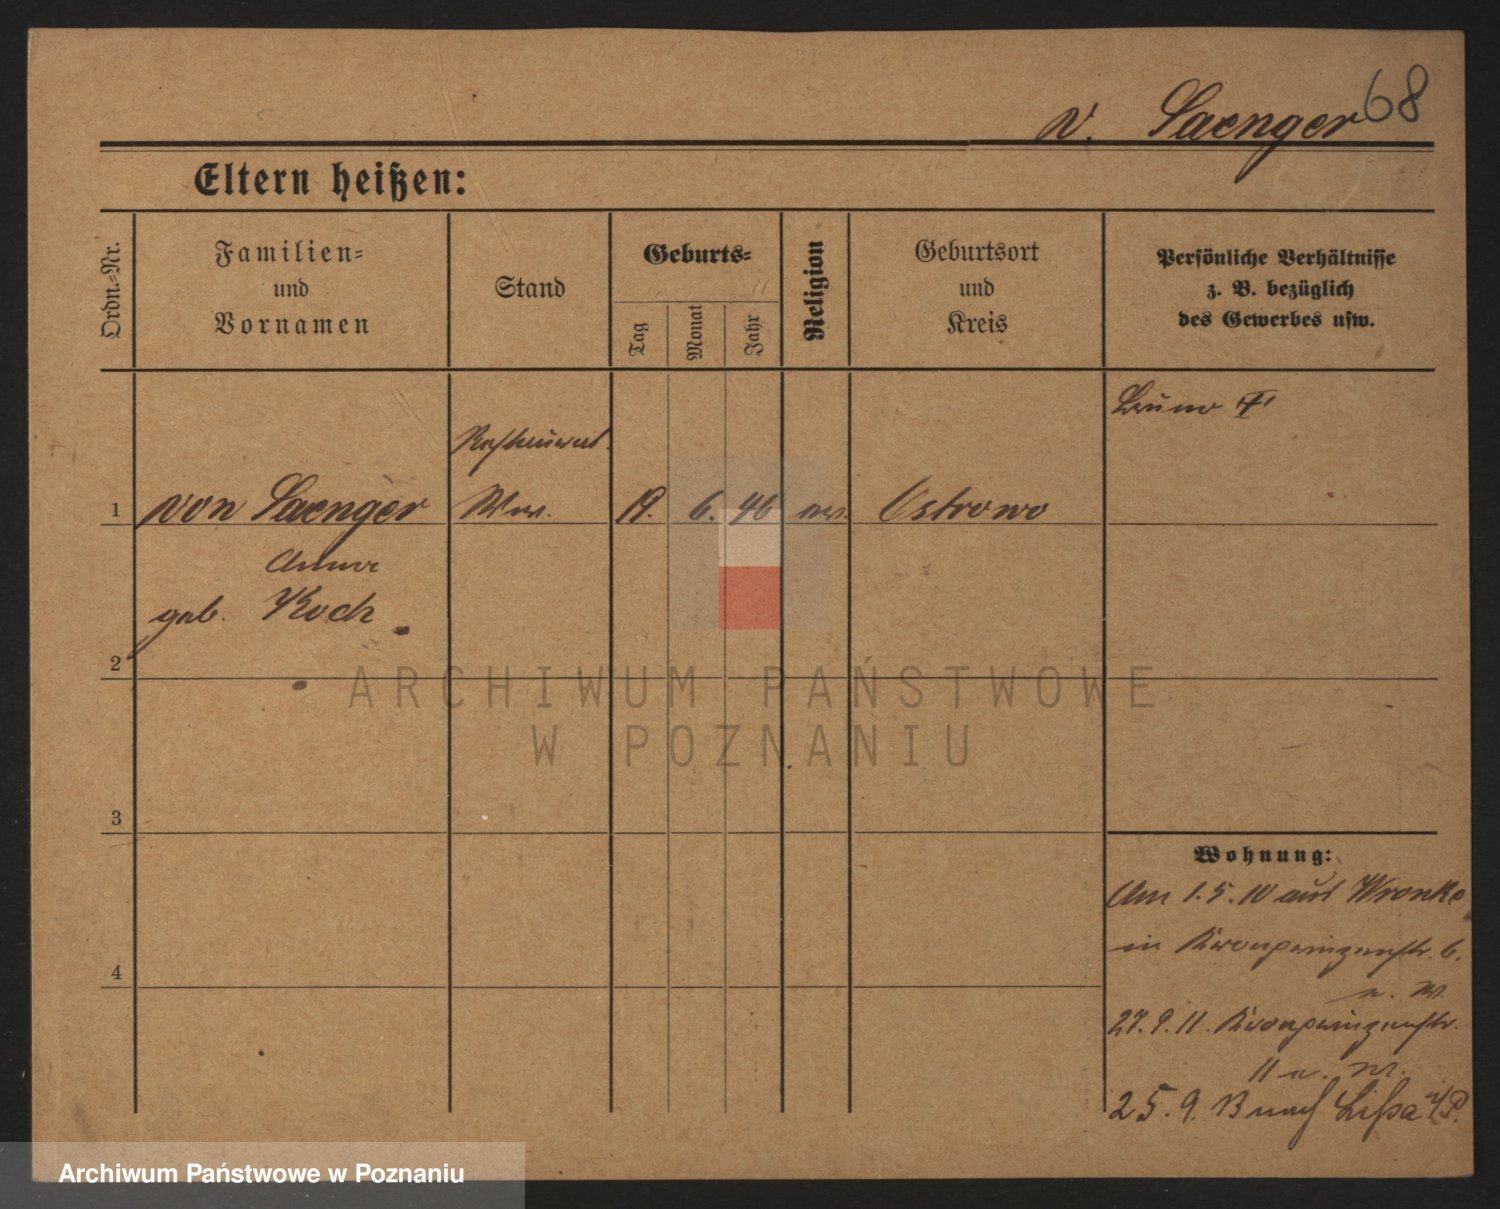 v. Saenger 68
Eltern heißen:
Ordn.-Nr.
Familien-
und
Vornamen
Stand
Geburts-
Tag
Monat
Jahr
Religion
Geburtsort
und
Kreis
Persönliche Verhältnisse
z. B. bezüglich
des Gewerbes usw.
1
von Saenger
Anna
geb. Koch
Ww.
19. 6. 46
Ostrowo
Bruno
2
3
4
Wohnung:
Am 1.5.10 aus Wronke
in Kronprinzenstr. 6.
27.9.11. Kronprinzenstr.
11
25.9.13 nach Lissa i/P.
ARCHIWUM PAŃSTWOWE
W POZNANIU
Archiwum Państwowe w Poznaniu